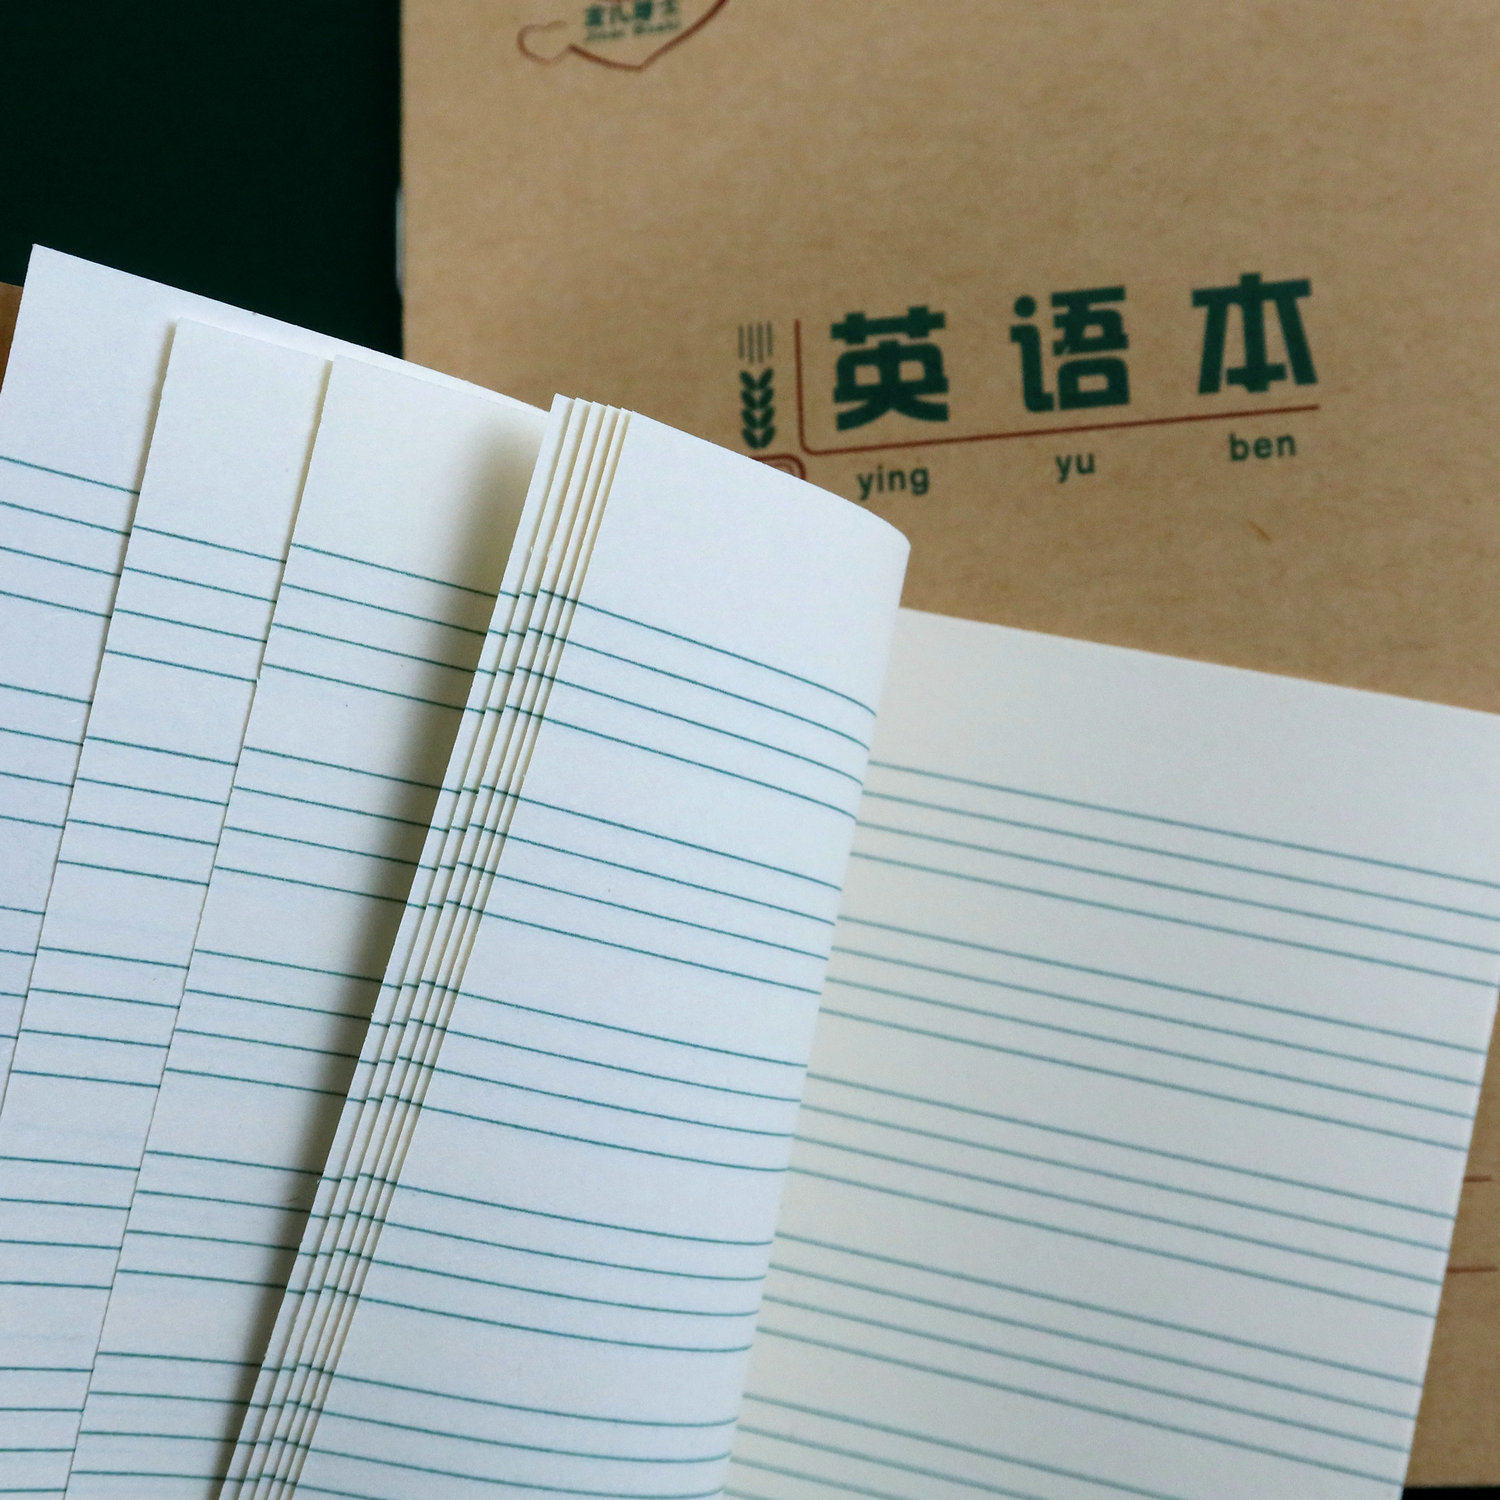 英语本
ying yu ben